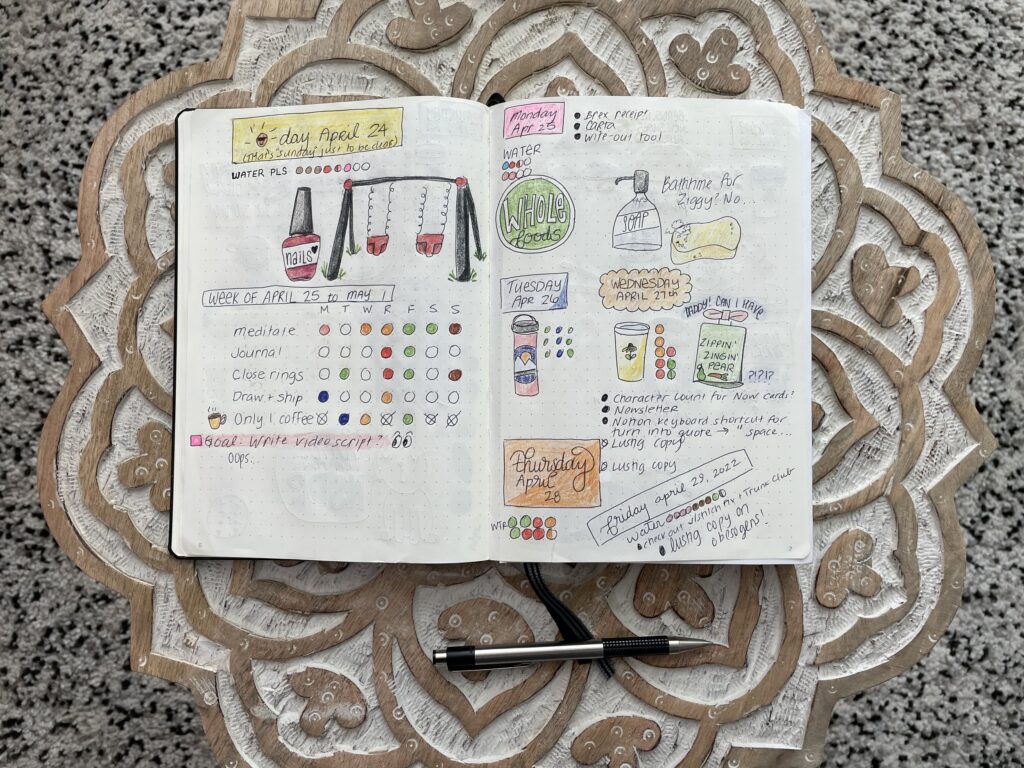 -day April 24
(That's Sunday just to be clear)
WATER PLS
nails
WEEK OF APRIL 25 to MAY 1
M T W R F S S
meditate
Journal
Close rings
Draw + Ship
Only 1 coffee
Goal: Write video script?
oops.
Monday
Apr 25
Brex receipt!
CARTA
Wipe-out tool
WATER
WHOLE
foods
SOAP
Bathtime for
Ziggy? No...
TUESDAY
APR 26
WEDNESDAY
APRIL 27th
DADDY! CAN I HAVE
ZIPPIN'
ZINGIN'
PEAR
?!?!?
Character count for Now cards!
Newsletter
Notion keyboard shortcut for
turn into quote → " space...
Lustig copy
Thursday
April
28
Lustig copy
WTR
Friday april 29, 2022
Water
check out + Trunk Club
lustig copy on
obesogens!